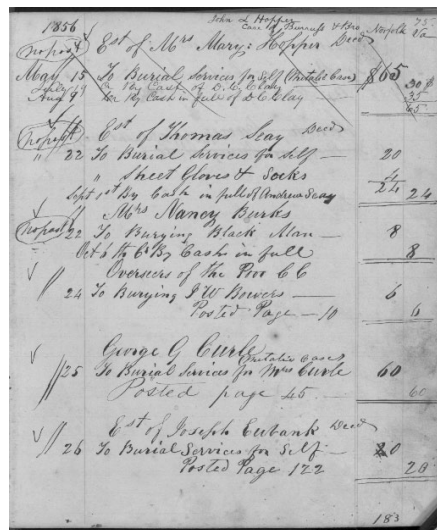 John A Hopper
1856 Care of Burruss & Bro Norfolk Va 75
no post Est of Mrs Mary Hopper Decd
May 15 To Burial Services for Self (Metalic Case) $65
July 19 By Cash of D. C. Clay 30
Aug 9 By Cash in full of D. C. Clay 35
65
no post Est of Thomas Seay Decd
" 22 To Burial Services for Self — 20
" Sheet Gloves & Socks 4
24
Sept 1st By Cash in full of Andrew Seay 24
Mrs Nancy Burks
no post 22 To Burying Black Man — 8
Oct 6th By Cash in full 8
Overseers of the Poor C C
24 To Burying J W Bowers — 6
Posted Page — 10 6
George G Curle
25 To Burial Services for Mrs Curle (Metalic Case) 60
Posted page 45 — 60
Est of Joseph Eubank Decd
26 To Burial Services for Self — 20
Posted Page 122 20
183